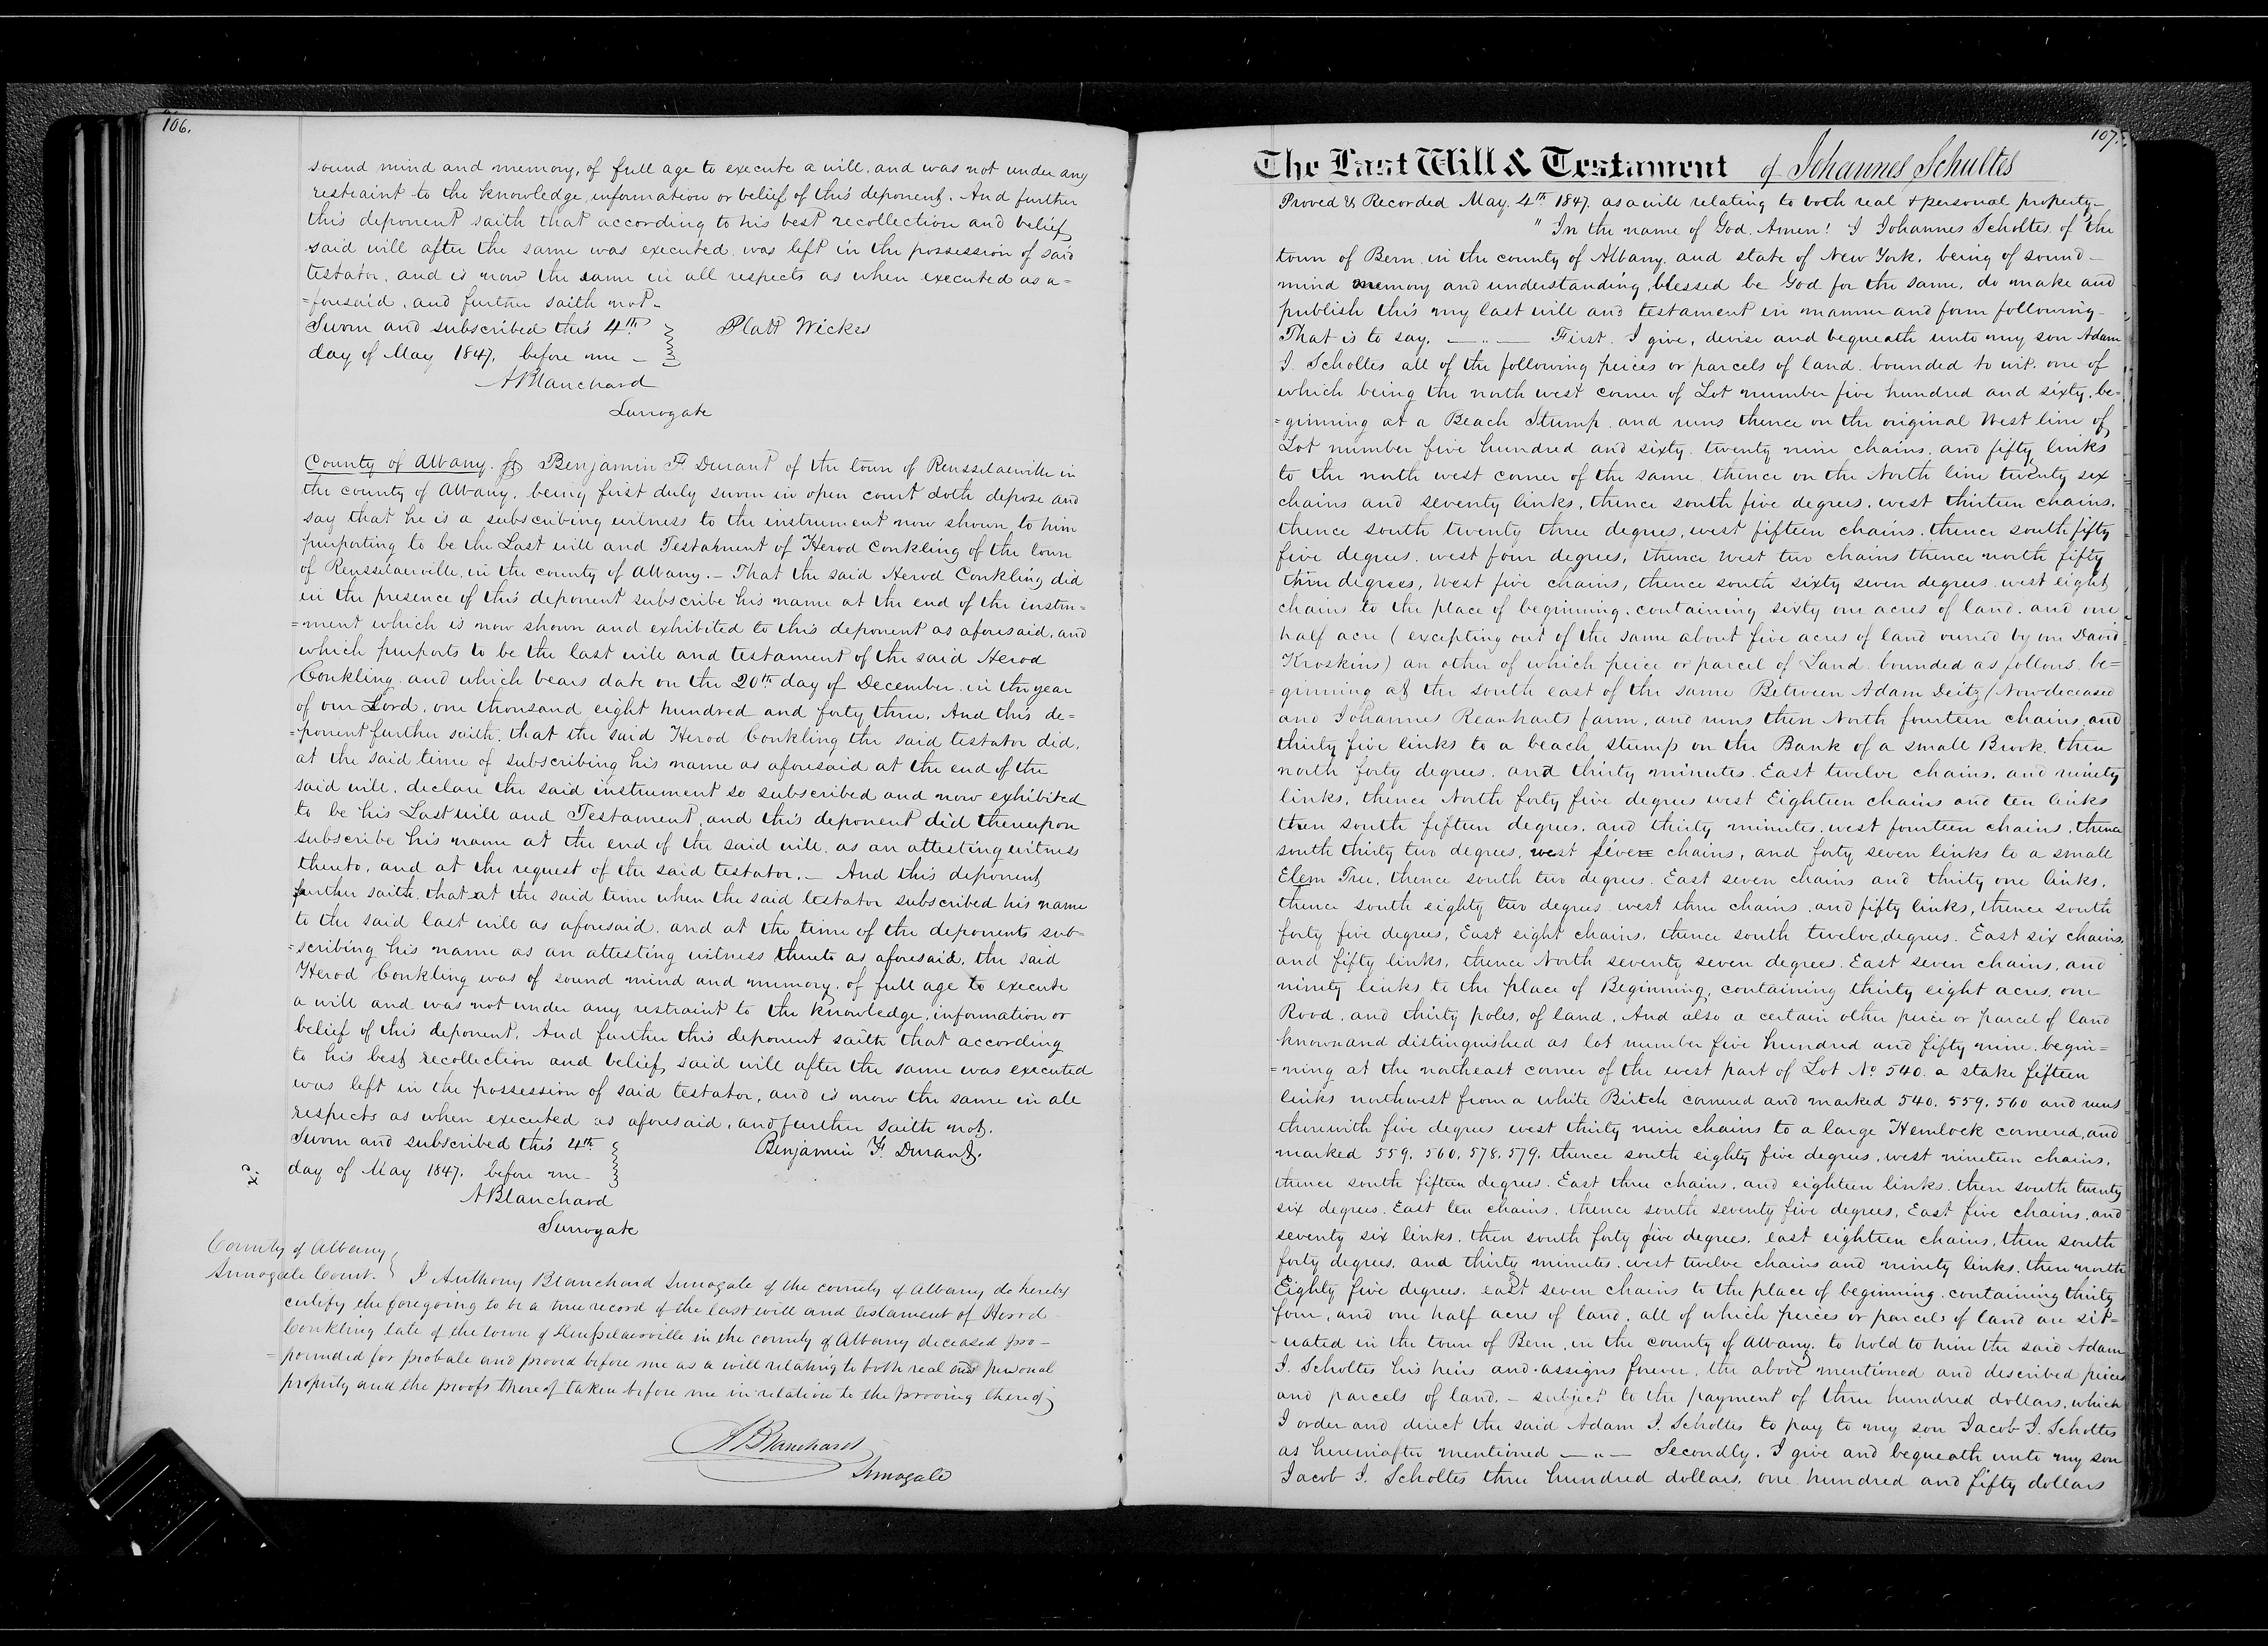 106.
sound mind and memory, of full age to execute a will, and was not under any
restraint to the knowledge, information or belief of this deponent. And further
this deponent saith that according to his best recollection and belief
said will after the same was executed was left in the possession of said
testator, and is now the same in all respects as when executed as a=
=foresaid, and further saith not.
Sworn and subscribed this 4th Platt Wickes
day of May 1847, before me -
A Blanchard
Surrogate
County of Albany. Ss Benjamin F. Durant of the town of Rensselaerville in
the county of Albany, being first duly sworn in open court doth depose and
say that he is a subscribing witness to the instrument now shown to him
purporting to be the Last will and Testament of Herod Conkling of the town
of Rensselaerville, in the county of Albany. - That the said Herod Conkling did
in the presence of this deponent subscribe his name at the end of the instru=
=ment which is now shown and exhibited to this deponent as aforesaid, and
which purports to be the last will and testament of the said Herod
Conkling and which bears date on the 20th day of December in the year
of our Lord, one thousand eight hundred and forty three. And this de=
=ponent further saith, that the said Herod Conkling the said testator did,
at the said time of subscribing his name as aforesaid at the end of the
said will, declare the said instrument so subscribed and now exhibited
to be his Last will and Testament, and this deponent did thereupon
subscribe his name at the end of the said will, as an attesting witness
thereto, and at the request of the said testator. - And this deponent
further saith, that at the said time when the said testator subscribed his name
to the said last will as aforesaid, and at the time of the deponents sub=
=scribing his name as an attesting witness thereto as aforesaid, the said
Herod Conkling was of sound mind and memory, of full age to execute
a will and was not under any restraint to the knowledge, information or
belief of this deponent. And further this deponent saith that according
to his best recollection and belief, said will after the same was executed
was left in the possession of said testator, and is now the same in all
respects as when executed as aforesaid, and further saith not.
Sworn and subscribed this 4th Benjamin F. Durant.
day of May 1847. before me -
A Blanchard
Surrogate
County of Albany
Surrogate Court. I Anthony Blanchard Surrogate of the county of Albany do hereby
certify the foregoing to be a true record of the last will and testament of Herod
Conkling late of the town of Rensselaerville in the county of Albany deceased pro-
=pounded for probate and proved before me as a will relating to both real and personal
property and the proofs thereof taken before me in relation to the proving thereof
A Blanchard
Surrogate
107.
The Last Will & Testament of Johannes Schultes
Proved & Recorded May. 4th 1847. as a will relating to both real & personal property -
" In the name of God. Amen! I Johannes Scholtes of the
town of Bern in the county of Albany, and state of New York, being of sound -
mind memory and understanding, blessed be God for the same, do make and
publish this my last will and testament in manner and form following -
That is to say. — „ — First. I give, devise and bequeath unto my son Adam
I. Scholtes all of the following peices or parcels of land bounded to wit. one of
which being the north west corner of Lot number five hundred and sixty, be=
=ginning at a Beach Stump and runs thence on the original West line of
Lot number five hundred and sixty twenty nine chains, and fifty links
to the north west corner of the same, thence on the North line twenty six
chains and seventy links, thence south five degrees, west thirteen chains,
thence south twenty three degrees, west fifteen chains, thence south fifty
five degrees, west four degrees, thence west two chains thence north fifty
three degrees, West five chains, thence south sixty seven degrees west eight
chains to the place of beginning, containing sixty one acres of land, and one
half acre (excepting out of the same about five acres of land owned by one David
Kroskins) an other of which peice or parcel of Land bounded as follows, be=
=ginning at the south east of the same Between Adam Deitz (Now deceased
and Johannes Reanharts farm, and runs then North fourteen chains and
thirty five links to a beach stump on the Bank of a small Brook, then
north forty degrees, and thirty minutes East twelve chains, and ninety
links, thence North forty five degrees west Eighteen chains and ten links
then south fifteen degrees, and thirty minutes west fourteen chains, thence
south thirty two degrees, west seven chains, and forty seven links to a small
Elem Tree, thence south two degrees East seven chains and thirty one links,
thence south eighty two degrees west three chains, and fifty links, thence south
forty five degrees, East eight chains, thence south twelve degrees. East six chains,
and fifty links, thence North seventy seven degrees. East seven chains, and
ninety links to the place of Beginning, containing thirty eight acres, one
Rood, and thirty poles, of land, And also a certain other peice or parcel of land
known and distinguished as lot number five hundred and fifty nine, begin=
=ning at the northeast corner of the west part of Lot No 540. a stake fifteen
links northwest from a white Birtch cornered and marked 540. 559. 560 and runs
thorewith five degrees west thirty nine chains to a large Hemlock cornered, and
marked 559. 560. 578. 579. thence south eighty five degrees, west nineteen chains,
thence south fifteen degrees. East three chains, and eighteen links then south twenty
six degrees. East ten chains, thence south seventy five degrees, East five chains, and
seventy six links, then south forty five degrees, east eighteen chains, then south
forty degrees, and thirty minutes, west twelve chains and ninety links, then north
Eighty five degrees, east seven chains to the place of beginning, containing thirty
four, and one half acres of land, all of which peices or parcels of land are sit=
=uated in the town of Bern, in the county of Albany, to hold to him the said Adam
I. Scholtes his heirs and assigns forever, the above mentioned and described peices
and parcels of land, - subject to the payment of three hundred dollars, which
I order and direct the said Adam I. Scholtes to pay to my son Jacob I. Scholtes
as hereinafter mentioned — „ — Secondly. I give and bequeath unto my son
Jacob I. Scholtes three hundred dollars, one hundred and fifty dollars